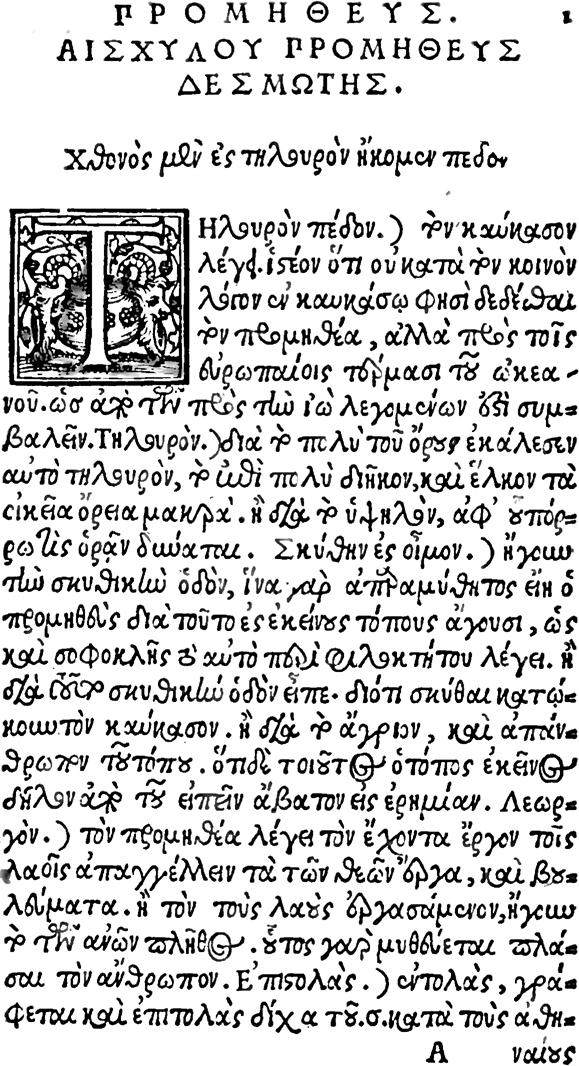 ΠΡΟΜΗΘΕΥΣ. 1
ΑΙΣΧΥΛΟΥ ΠΡΟΜΗΘΕΥΣ
ΔΕΣΜΩΤΗΣ.
Χθονὸς μὲν ἐς τηλουρὸν ἥκομεν πέδον
ΤΗλουρὸν πέδον.) τὸν καύκασον
λέγει. ἰστέον ὅτι οὐ κατὰ τὸν κοινὸν
λόγον ἐν καυκάσῳ φησὶ δεδέσθαι
τὸν προμηθέα, ἀλλὰ πρὸς τοῖς
εὐρωπαίοις τέρμασι τοῦ ὠκεα-
νοῦ. ὡσ ἀπὸ τῶν πρὸς τὴν ἰὼ λεγομένων ἔστι συμ-
βαλεῖν. Τηλουρὸν.) διὰ τὸ πολὺ τοῦ ὄρους ἐκάλεσεν
αὐτὸ τηλουρὸν, τὸ ἐπὶ πολὺ διῆκον, καὶ ἕλκον τὰ
οἰκεῖα ὅρεια μακρὰ. ἢ διὰ τὸ ὑψηλὸν, ἀφ' οὗ πόρ-
ρω τὶς ὁρᾷν δύναται. Σκύθην ἐς οἶμον.) ἤγουν
τὴν σκυθικὴν ὁδὸν, ἵνα γὰρ ἀπαραμύθητος εἴη ὁ
προμηθεὺς διὰ τοῦτο ἐς ἐκείνους τόπους ἄγουσι, ὡς
καὶ σοφοκλῆς τὸ αὐτὸ περὶ φιλοκτήτου λέγει. ἢ
διὰ τοῦτο σκυθικὴν ὁδὸν εἶπε. διότι σκύθαι κατῴ-
κουν τὸν καύκασον. ἢ διὰ τὸ ἄγριον, καὶ ἀπάν-
θρωπον τοῦ τόπου. ὅτι δὲ τοιοῦτος ὁ τόπος ἐκεῖνος
δῆλον ἀπὸ τοῦ εἰπεῖν ἄβατον εἰς ἐρημίαν. Λεωρ-
γόν.) τὸν προμηθέα λέγει τὸν ἔχοντα ἔργον τοῖς
λαοῖς ἀπαγγέλλειν τὰ τῶν θεῶν ἔργα, καὶ βου-
λεύματα. ἢ τὸν τοὺς λαοὺς ἐργασάμενον, ἤγουν
τὸ τῶν ἀνῶν πλῆθος. οὗτος γὰρ μυθεύεται πλά-
σαι τὸν ἄνθρωπον. Ἐπιστολὰς.) ἐντολὰς, γρά-
φεται καὶ ἐπιτολὰς δίχα τοῦ.σ. κατὰ τοὺς ἀθη-
A ναίους